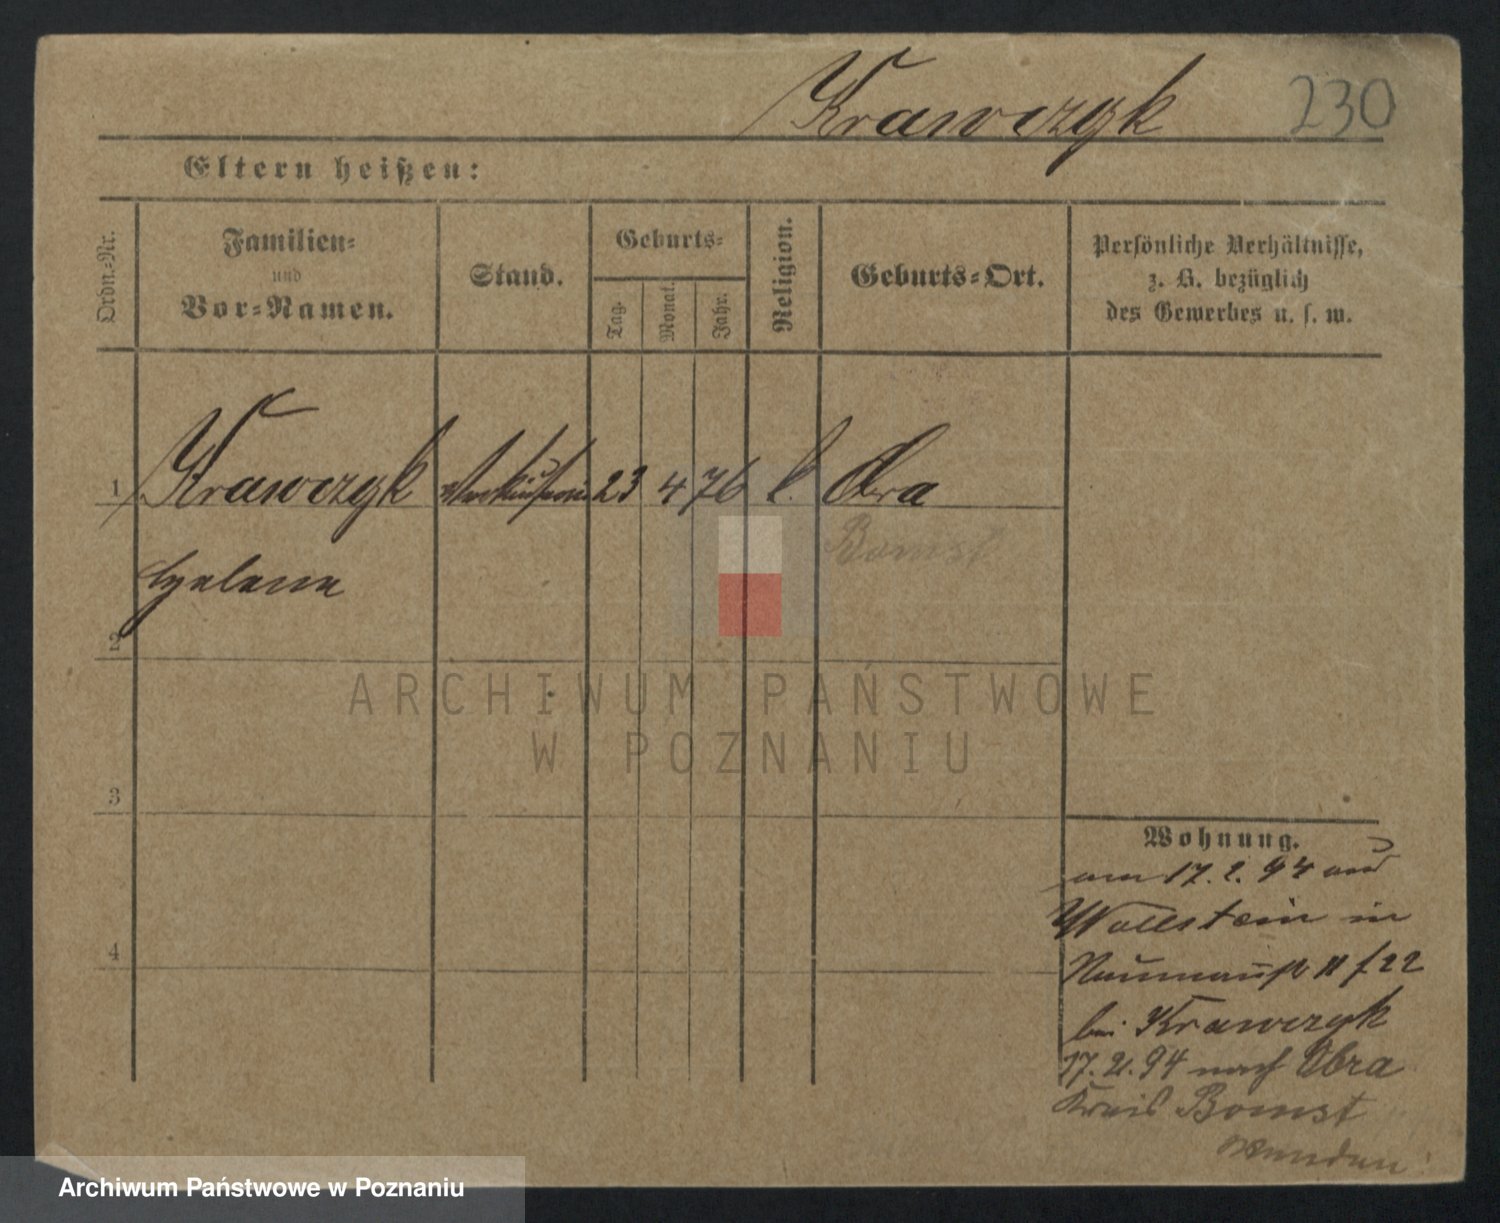 Krawczyk 230
Eltern heißen:
Ordn.-Nr.
Familien-
und
Vor-Namen.
Stand.
Geburts-
Tag.
Monat.
Jahr.
Religion.
Geburts-Ort.
Persönliche Verhältnisse,
z. B. bezüglich
des Gewerbes u. s. w.
1 Krawczyk Verkäuferin 23 4 76 k. Obra
Bomst
Helene
2
ARCHIWUM PAŃSTWOWE
W POZNANIU
3
4
Wohnung.
am 17. 2. 94 aus
Wollstein in
22
bei Krawczyk
94 nach Obra
Kreis Bomst
Archiwum Państwowe w Poznaniu